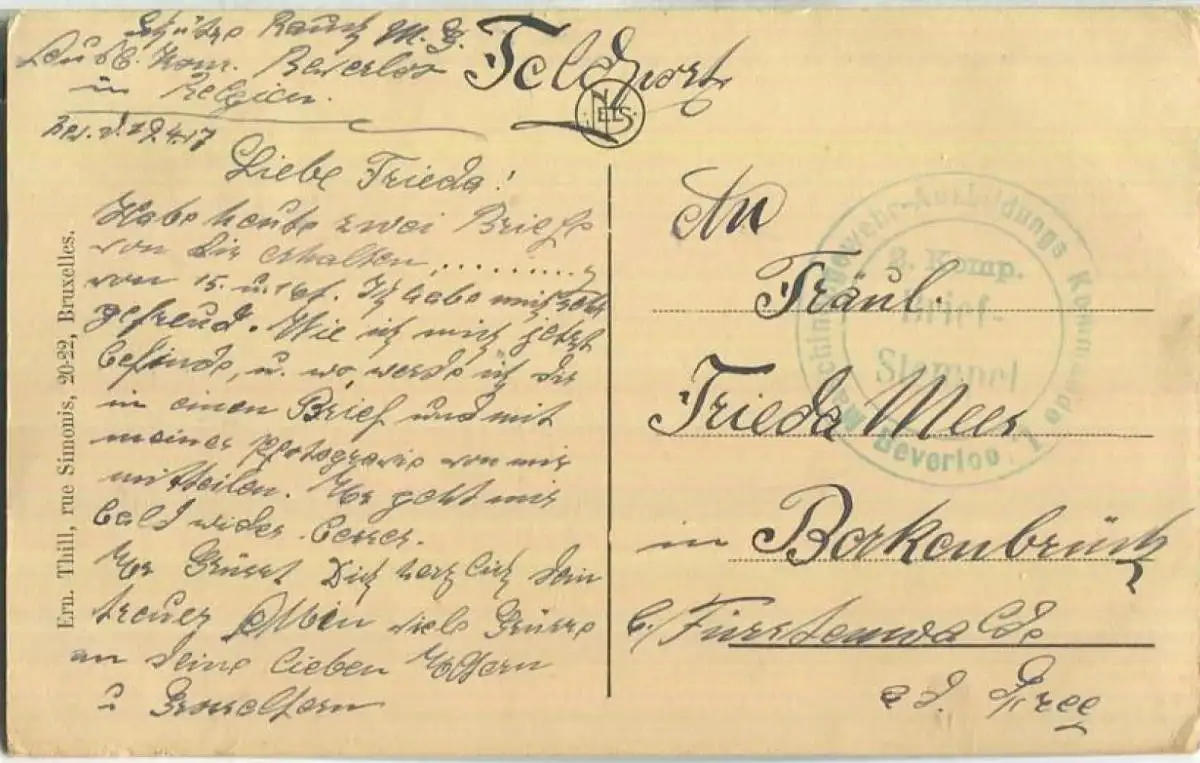 Schütze Rausch M. G.
Ausb. Kom. Beverloo
in Belgien.
Bev. d. 19.4.17
Feldpost
NELS
Liebe Frieda!
Habe heute zwei Briefe
von dir erhalten, ..........
vom 15. u. 16t. Ich habe mich sehr
gefreud. Wie ich mich jetzt
befinde, u. wo, werde ich dir
in einen Brief und mit
meiner Photograpie von mir
mitteilen. Es geht mir
bald wider besser.
Es Grüsst Dich herzlich dein
treuer Albin viele Grüsse
an deine lieben Eltern
u Grosseltern
Ern. Thill, rue Simonis, 20-22, Bruxelles.
An
Fräul.
Frieda Meer
in Berkenbrück
b./ Fürstenwalde
a. d. Spree
Maschinengewehr-Ausbildungs Kommando
2. Komp.
Brief-
Stempel
Beverloo